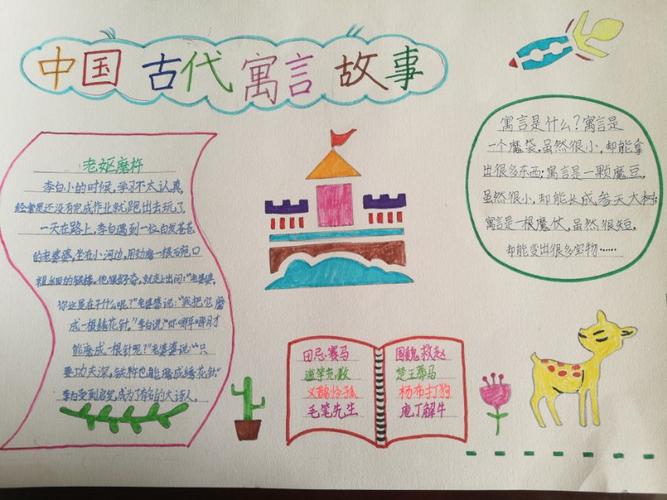 中国古代寓言故事
老妪磨杵
李白小的时候,学习不太认真
经常是还没有完成作业就跑出去玩了
一天在路上,李白遇到一位白发苍苍
的老婆婆,坐在小河边,用力磨一根石
粗的铁棒。他很好奇,就走上去问:“老婆婆,
你这是在干什么呢?”老婆婆说:“我把它磨
成一根绣花针。”李白说:“你哪年哪月才
能磨成一根针呢?”老婆婆说:“只
要功夫深,铁杵也能磨成绣花针”
李白受到启发,成为了有名的大诗人。
寓言是什么?寓言是
一个魔袋,虽然很小,却能拿
出很多东西;寓言是一颗魔豆,
虽然很小,却能长成参天大树;
寓言是一根魔伏,虽然很短,
却能变出很多宝物……
田忌赛马
围魏救赵
楚王葬马
杨布打狗
毛笔先生
庖丁解牛